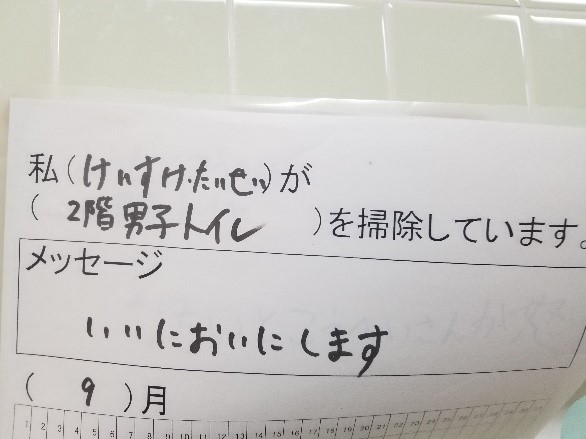 私(けいすけ・たいせい)が
(2階男子トイレ)を掃除しています。
メッセージ
いいにおいにします
(9)月
1 2 3 4 5 6 7 8 9 10 11 12 13 14 15 16 17 18 19 20 21 22 23 24 25 26 27 28 29 30 31